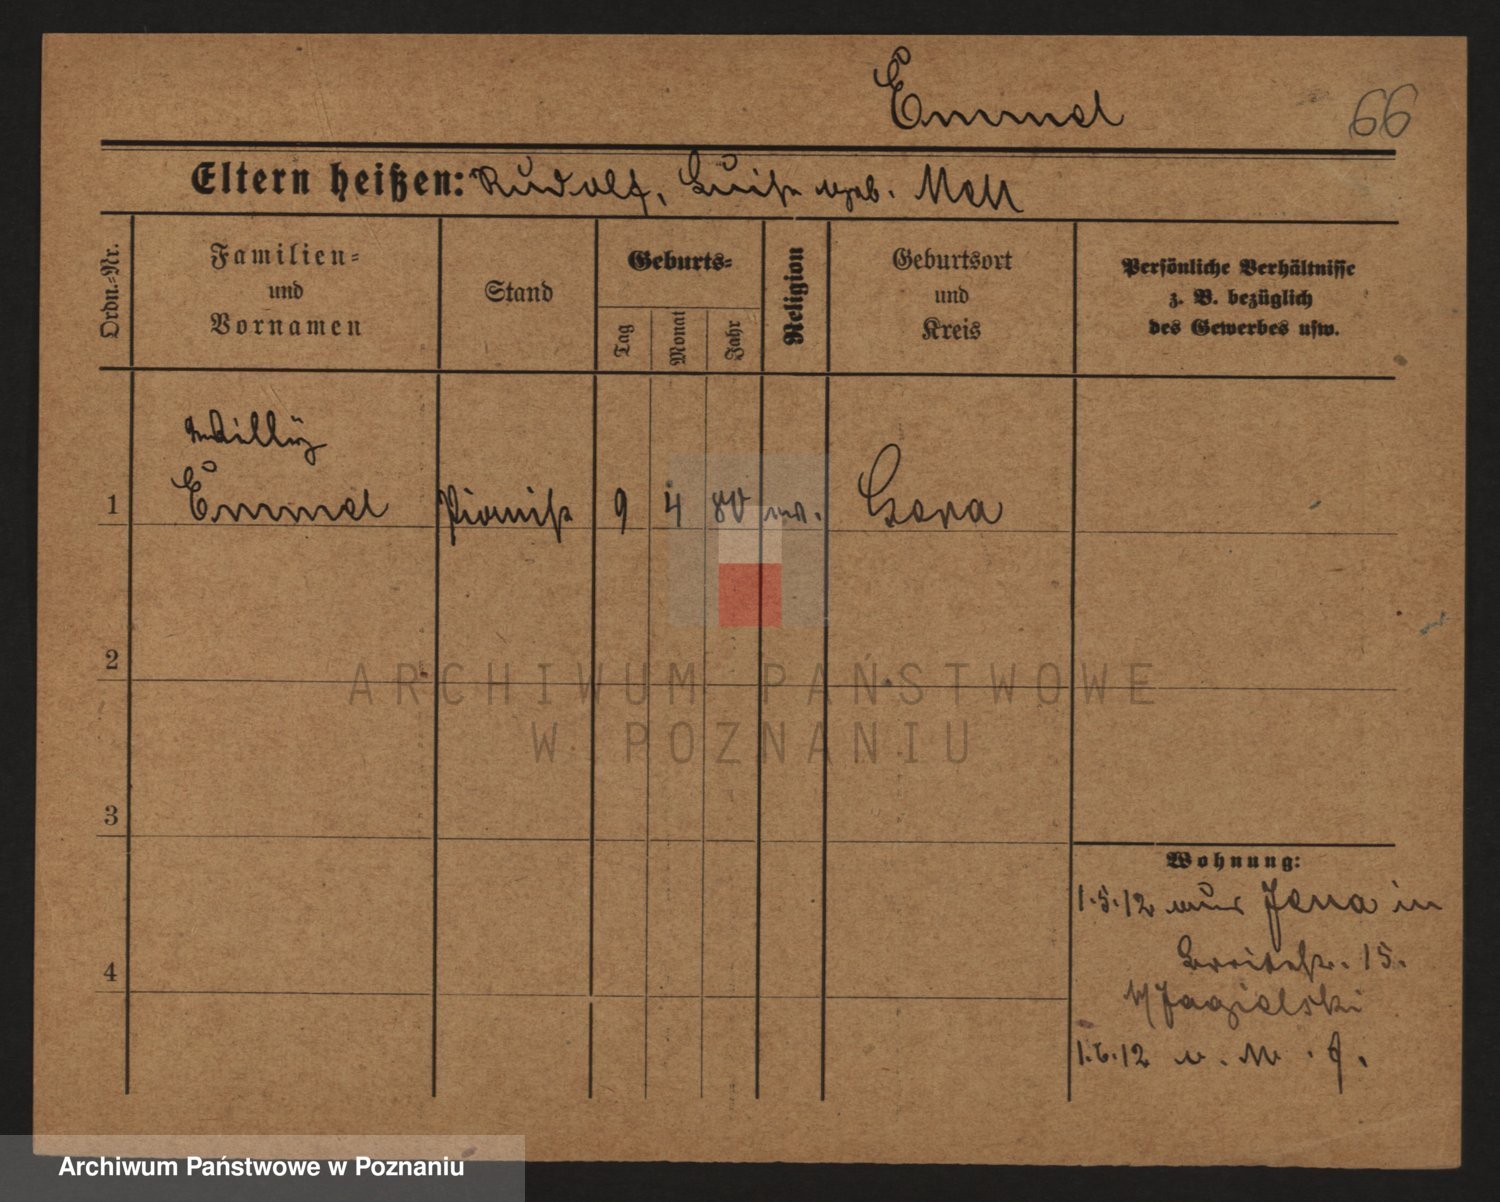 Emmel
66
Eltern heißen: Rudolf, Luise geb. Mell
Ordn.-Nr.
Familien-
und
Vornamen
Stand
Geburts-
Tag
Monat
Jahr
Religion
Geburtsort
und
Kreis
Persönliche Verhältnisse
z. B. bezüglich
des Gewerbes usw.
Willÿ
1 Emmel Pianist 9 4 80 Gera
2
3
4
ARCHIWUM PAŃSTWOWE
W POZNANIU
Wohnung:
1.5.12 aus Jena in
Breitestr. 15.
b/Jagielski
1.6.12 n. M.
Archiwum Państwowe w Poznaniu